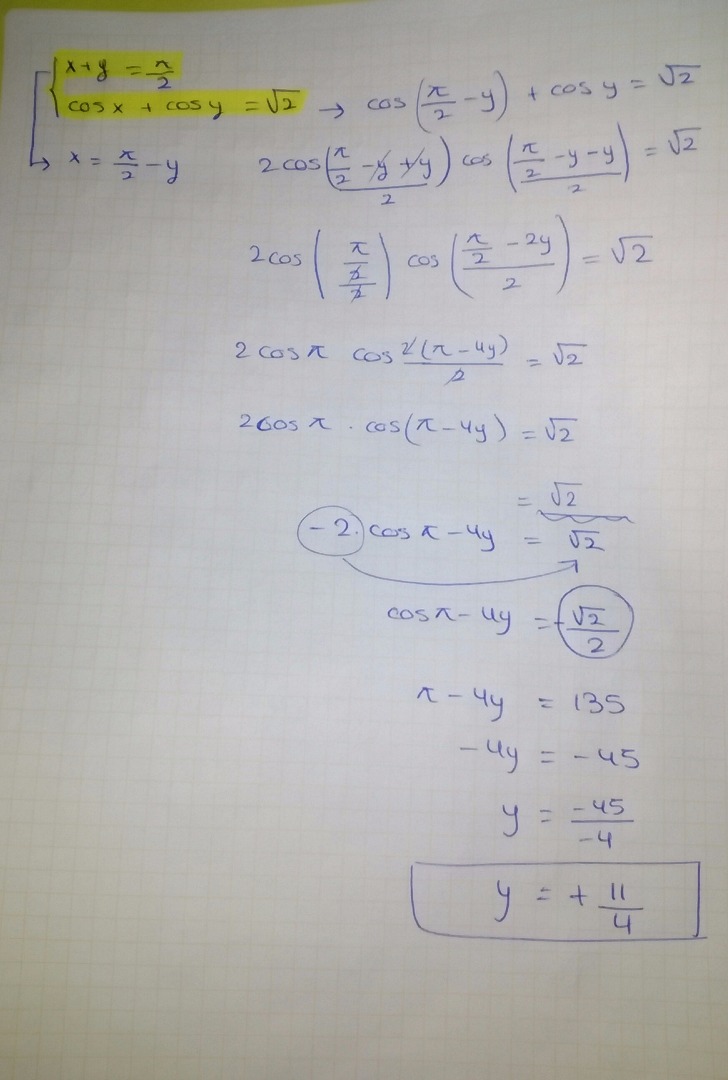 x+y = π/2
cosx + cosy = √2 → cos(π/2 - y) + cosy = √2
x = π/2 - y 2cos((π/2 - y + y)/2) cos((π/2 - y - y)/2) = √2
2cos(π/2/2) cos((π/2 - 2y)/2) = √2
2cosπ cos 2(π-4y)/2 = √2
2cosπ · cos(π-4y) = √2
= √2
-2·cosπ-4y = √2
cosπ-4y = -√2/2
π-4y = 135
-4y = -45
y = -45/-4
y = + 11/4